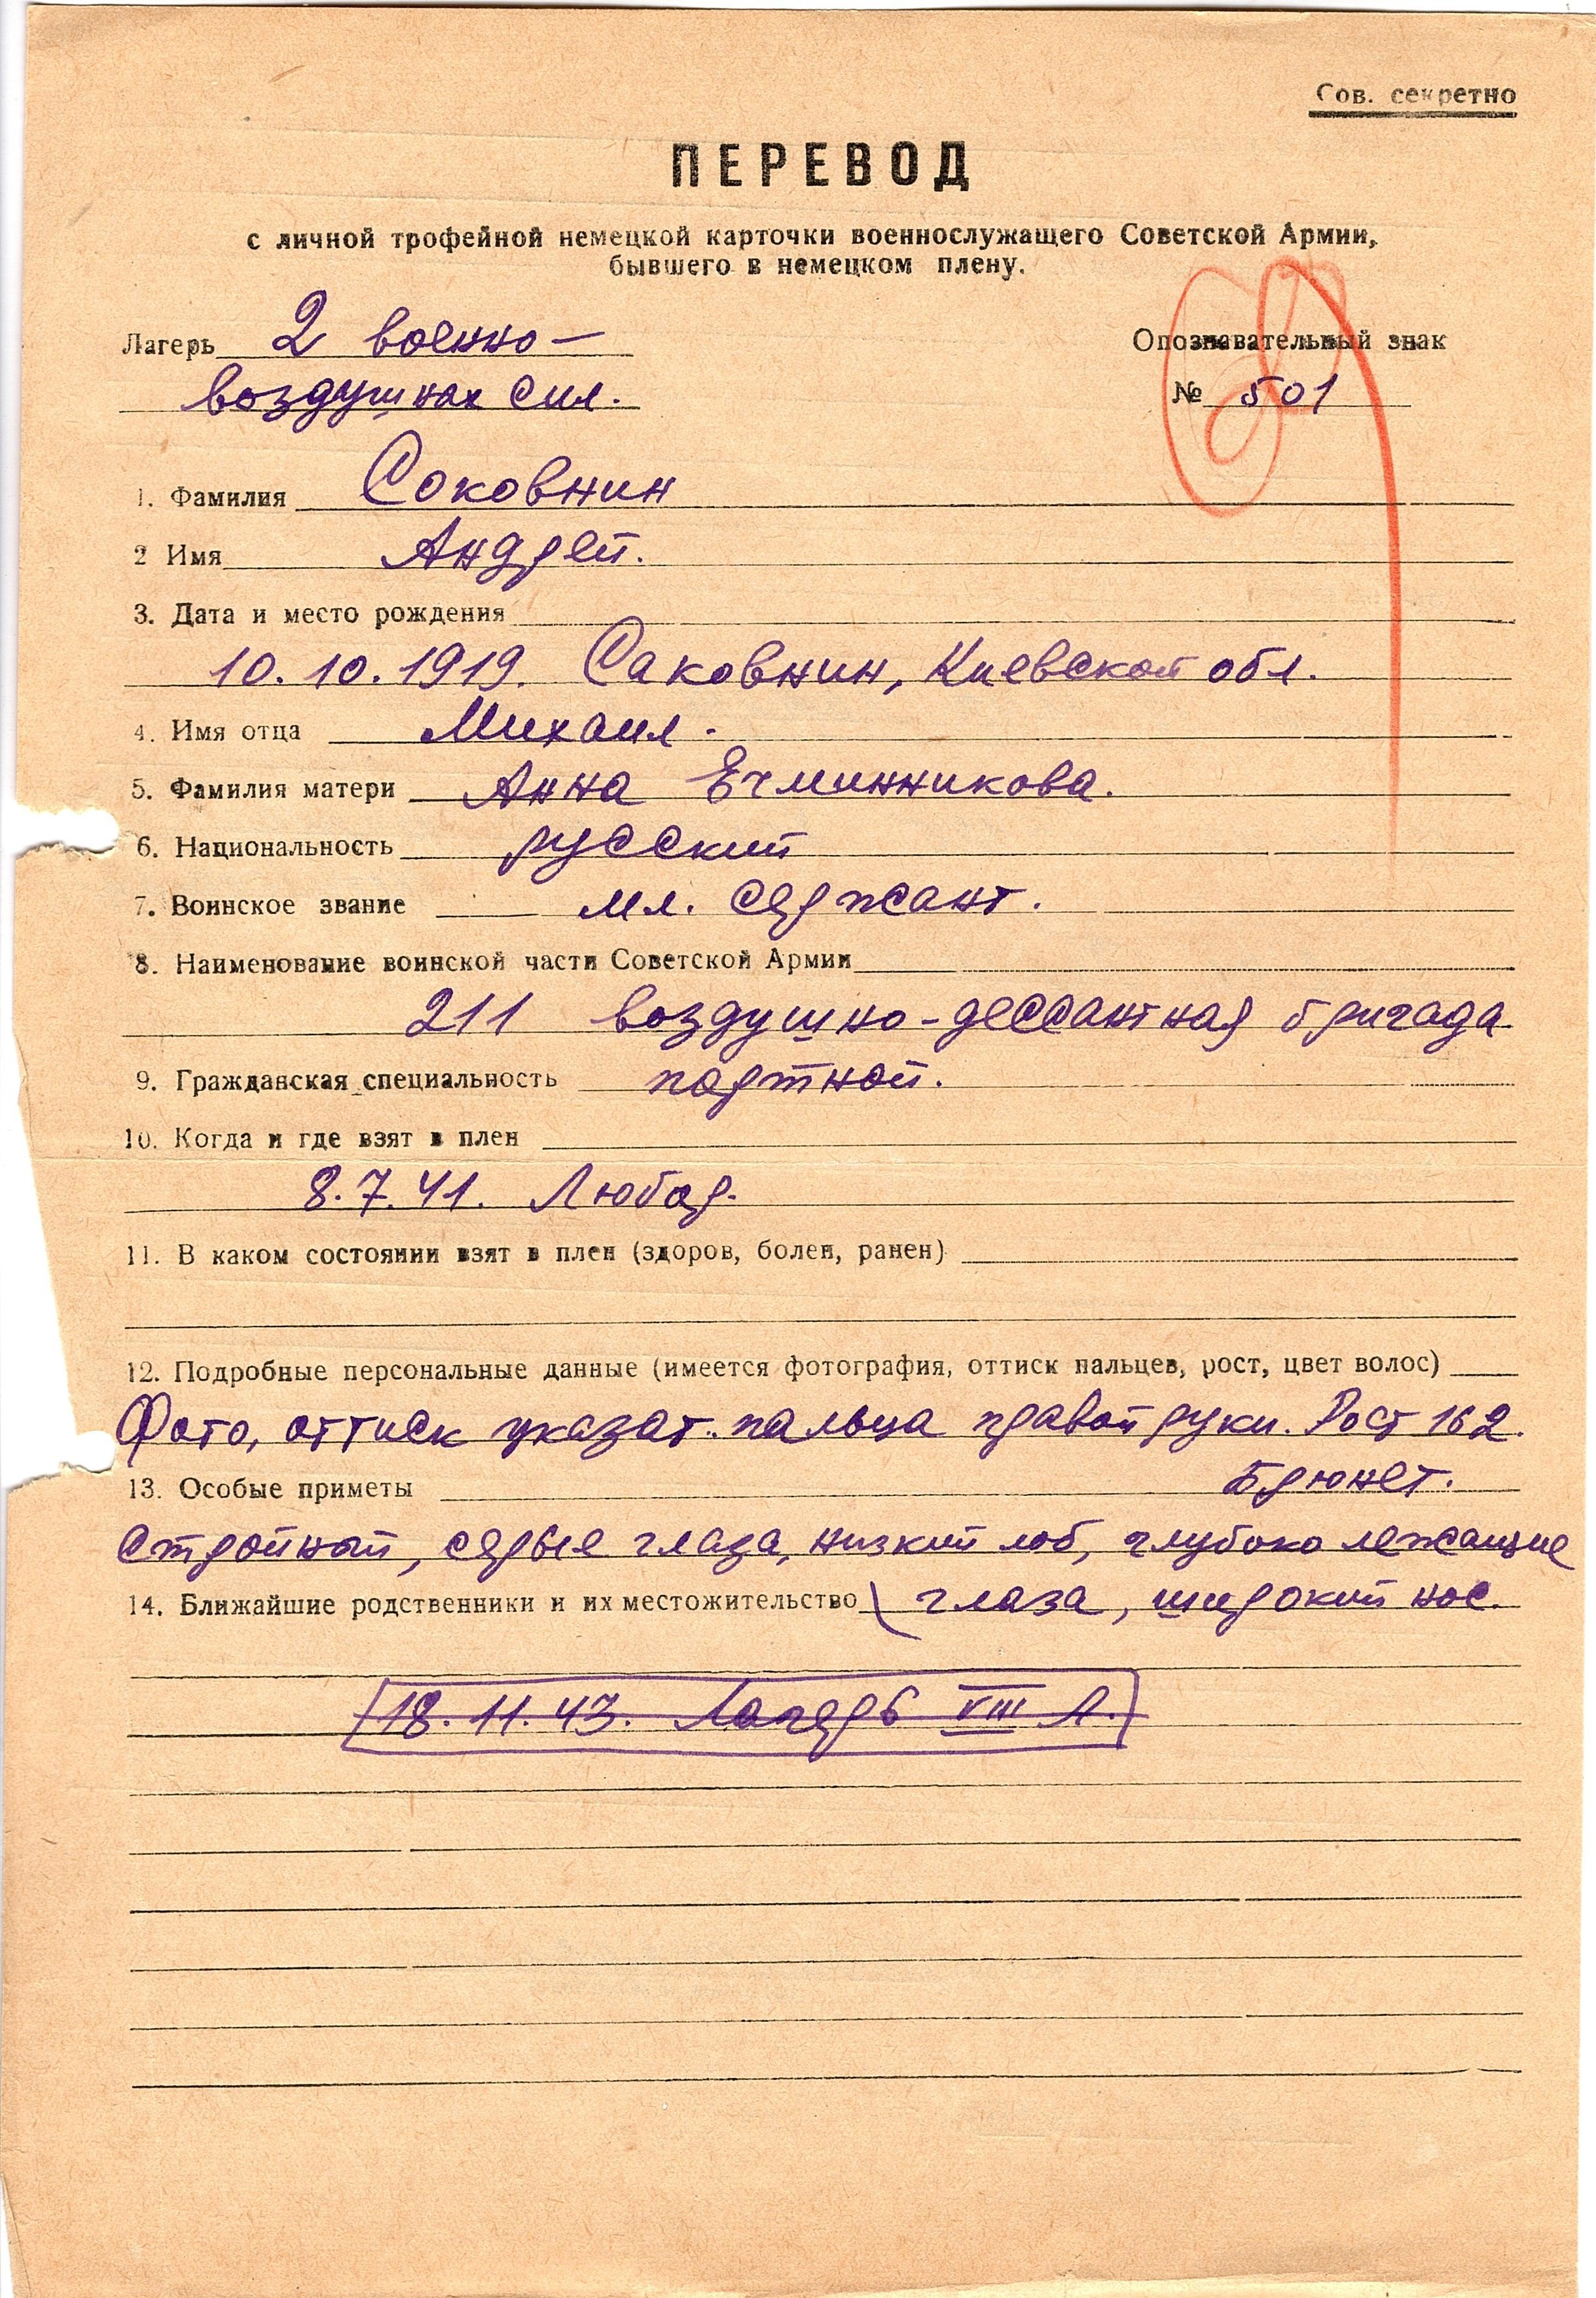 Сов. секретно
ПЕРЕВОД
с личной трофейной немецкой карточки военнослужащего Советской Армии,
бывшего в немецком плену.
Лагерь 2 военно-
воздушных сил.
Опознавательный знак
№ 501
1. Фамилия Соковнин
2 Имя Андрей.
3. Дата и место рождения
10.10.1919. Саковнин, Киевской обл.
4. Имя отца Михаил.
5. Фамилия матери Анна Ечминникова.
6. Национальность русский
7. Воинское звание мл. сержант.
8. Наименование воинской части Советской Армии
211 воздушно-дессантная бригада
9. Гражданская специальность портной.
10. Когда и где взят в плен
8.7.41. Любар.
11. В каком состоянии взят в плен (здоров, болен, ранен)
12. Подробные персональные данные (имеется фотография, оттиск пальцев, рост, цвет волос)
Фото, оттиск указат. пальца правой руки. Рост 162.
Брюнет.
13. Особые приметы
Стройный, серые глаза, низкий лоб, глубоко лежащие
14. Ближайшие родственники и их местожительство
глаза, широкий нос.
18.11.43. Лагерь VIII Л.